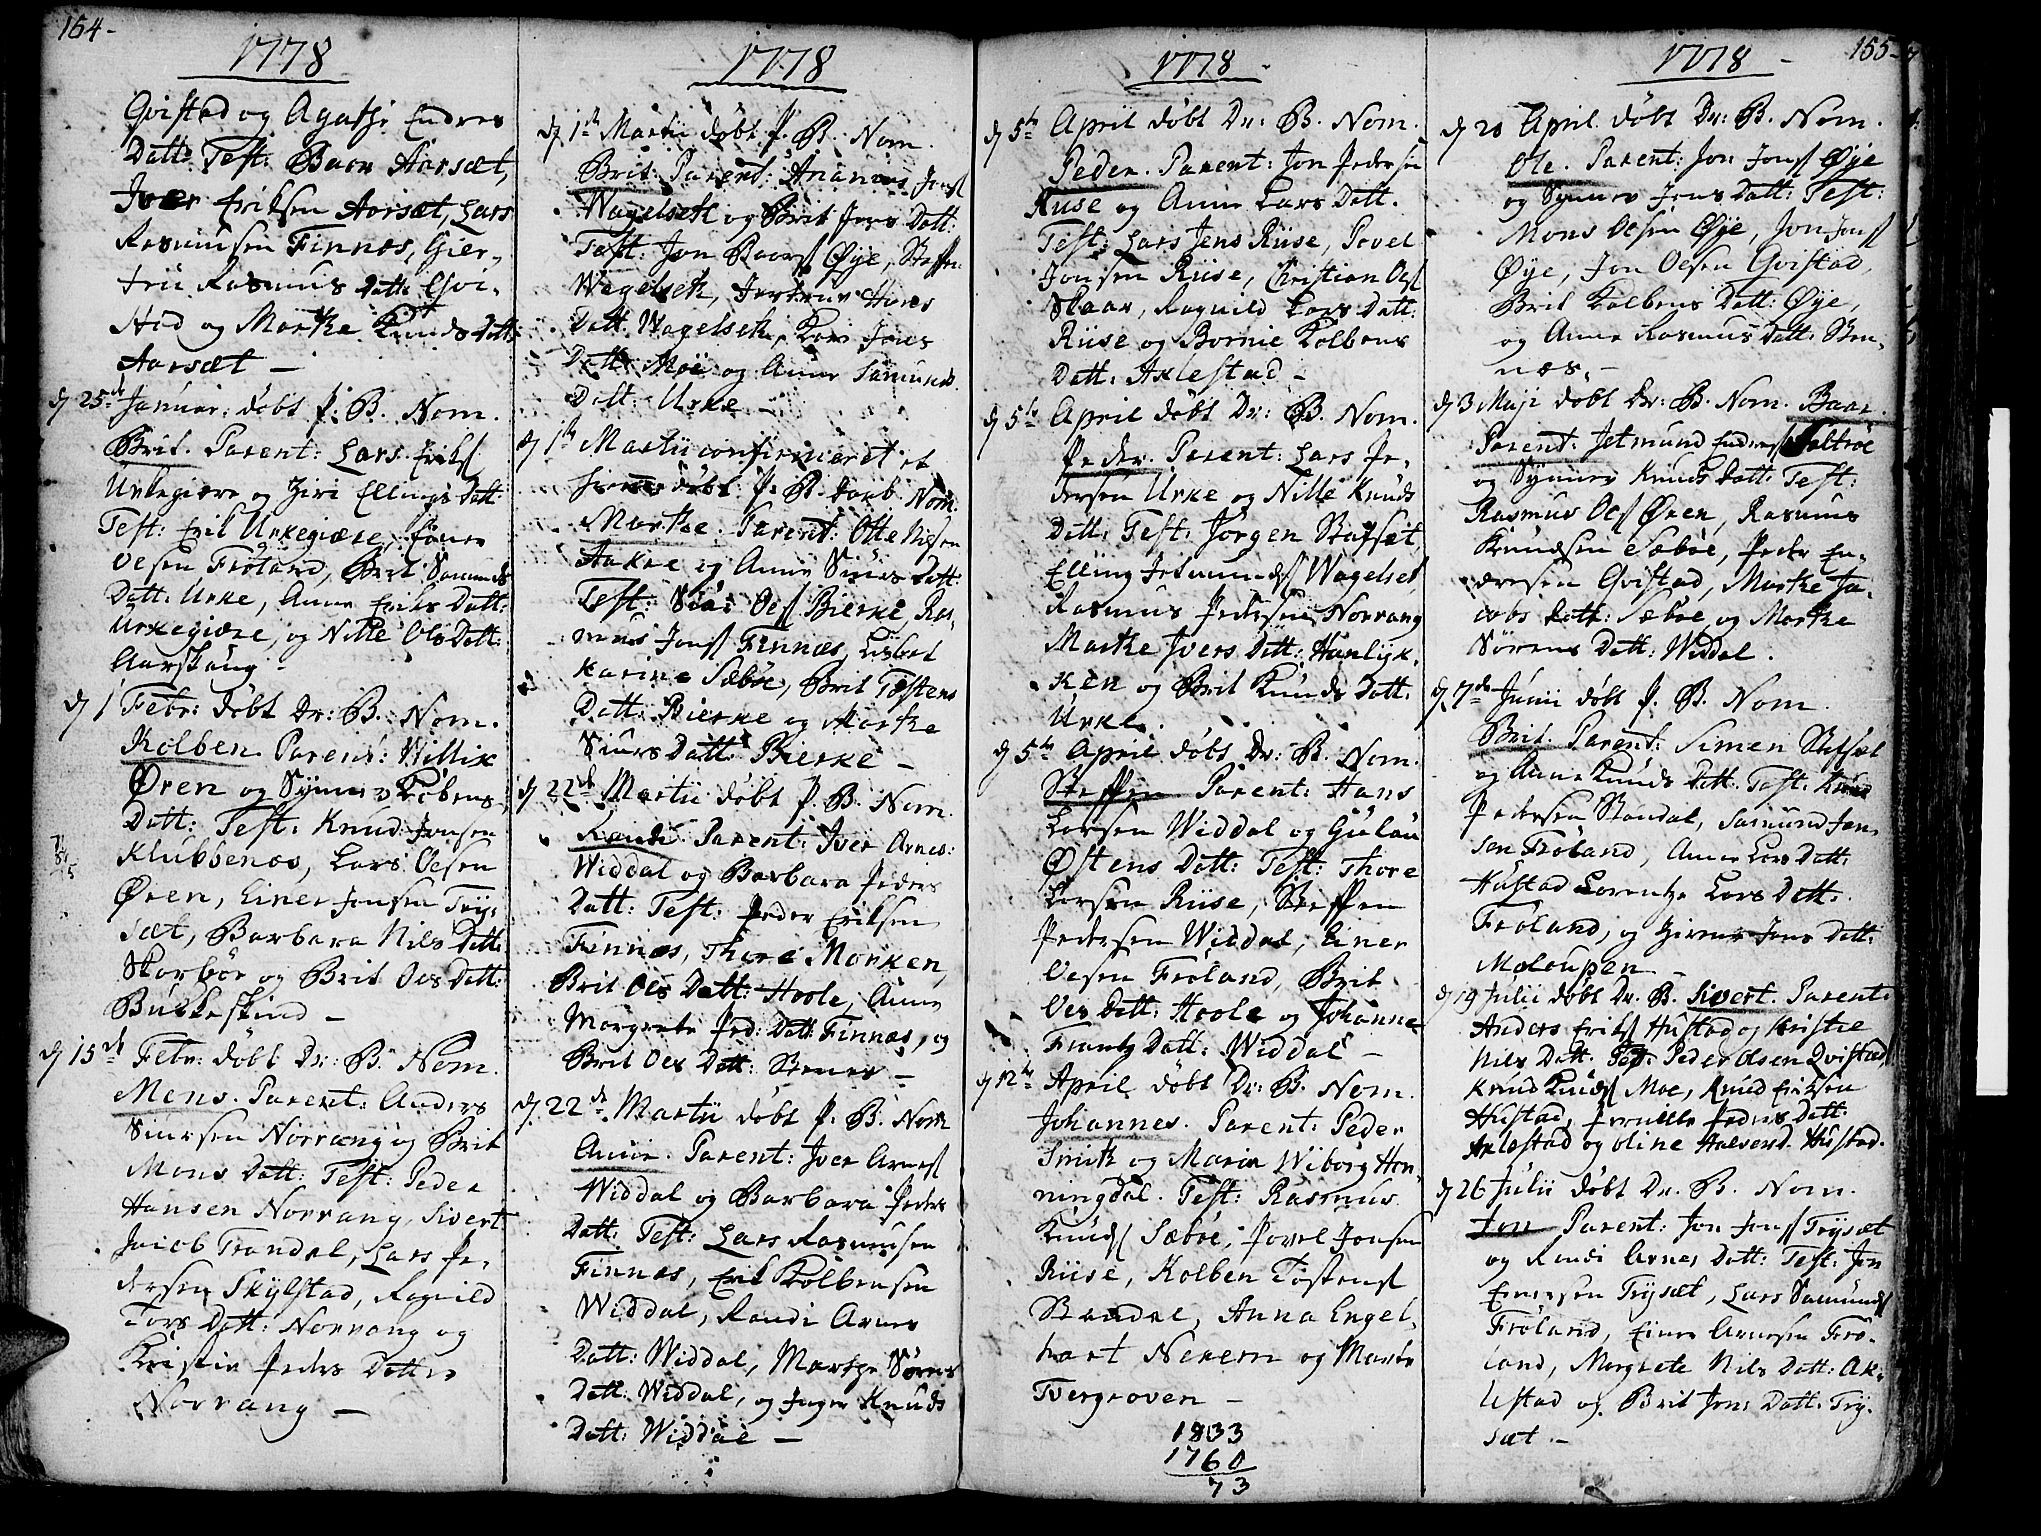 164-
1778
Qvistad og Agathe Endres
Datt: Test: Baar Aarsæt,
Iver Eriksen Aarsæt, Lars
Rasmusen Finnæs, Gier-
tru Rasmus Datt: Qvi-
stad og Marthe Knuds Datt:
Aarsæt —
d 25de Januar: døbt P: B. Nom.
Brit. Parent: Lars Eriks
Urkegiære og Ziri Ellings Datt:
Test: Erik Urkegiære,
Olsen Frøland, Brit Samunds
Datt: Urke, Anne Eriks Datt:
Urkegiære, og Nille Ols Datt:
Aarskaug —
d 1 Febr: døbt Dr: B. Nom.
Kolben. Parent: Willix
Øren og Synnev Kolbens
Datt: Test: Knud Jonsen
Klubbenæs, Lars Olsen
Øren, Einer Jonsen Trÿ-
sæt, Barbara Nils Datt:
Skorbør og Brit Ols Datt:
Buskeskind —
d 15de Febr: døbt Dr: B. Nom.
Mons. Parent: Anders
Siursen Norrang og Brit
Mons Datt: Test: Peder
Hansen Norrang, Sivert
Jacob Trandal, Lars Pe-
dersen Skÿlstad, Ragnild
Tors Datt: Norrang og
Kristin Peders Datter
Norrang —
1778
d 1de Martii døbt P. B. Nom.
Brit Parent: Ananias Jons
Wagelseth og Brit Jens Datt:
Test: Jon Baars Øÿe, Steffen
Wagelseth, Hans
Datt: Wagelseth, Kari Jons
Datt: Moe og Anne Samunds
Datt: Urke —
d 1de Martii confirmeret et
hiemedøbt P. B. Nom.
Marthe. Parent: Otte Nilsen
Aakre og Anne Siurs Datt:
Test: Siur Ols Bierke, Ras-
mus Jons Finnæs, Lisbet
Karine Sæbøe, Brit Tostens
Datt: Bierke og Marthe
Siurs Datt: Bierke —
d 22de Martii døbt P. B. Nom.
Randi Parent: Iver Arnes:
Widdal og Barbara Peders
Datt: Test: Peder Eriksen
Finnæs, Thore Morken,
Brit Ols Datt: Hoole, Anne
Margrete Ped: Datt: Finnæs, og
Brit Ols Datt: Stenes —
d. 22de Martii døbt P. B. Nom
Anne. Parent: Iver Arnes
Widdal og Barbara Peders
Datt: Test: Lars Rasmusen
Finnæs, Erik Kolbensen
Widdal, Randi Arnes
Datt: Widdal, Marthe Sørens
Datt: Widdal, og Inger Knuds
Datt: Widdal —
1778 -
d 5te April døbt Dr: B. Nom.
Peder. Parent: Jon Pedersen
Riise og Anne Lars Datt.
Test: Lars Jens Riise, Povel
Jonsen Riise, Christian Ols
Skaar, Ragnild Lars Datt:
Riise og Bornie Kolbens
Datt: Axlestad —
d 5te April døbt Dr: B. Nom.
Peder. Parent: Lars Pe-
dersen Urke og Nille Knuds
Datt: Test: Jørgen Stafset,
Elling Jetmunds Wagelset
Rasmus Pedersen Norrang
Marthe Ivers Datt: Hunlÿk-
ken og Brit Knuds Datt:
Urke.
d 5te April døbt Dr: B. Nom.
Steffen Parent: Hans
Larsen Widdal og Gulau
Østens Datt: Test: Thore
Larsen Riise, Steffen
Pedersen Widdal, Einer
Olsen Frøland, Brit
Ols Datt: Hoole og Johanne
Frantz Datt: Widdal —
d 12te April døbt Dr: B. Nom.
Johannes. Parent: Peder
Smith og Maria Wiborg Hon-
ningdal. Test: Rasmus
Knuds Sæbøe, Povel Jonsen
Riise, Kolben Tostens
Standal, Anna Engel-
hart Nerem og Marte
Tvergroven —
1833
1760
73
1778 -
155-
d 20 April døbt Dr: B. Nom.
Ole. Parent: Jon Jons Øÿe
og Synnev Jens Datt: Test:
Mons Olsen Øÿe, Jon Jons
Øÿe, Jon Olsen Qvistad,
Brit Kolbens Datt: Øÿe,
og Anne Rasmus Datt: Sten-
næs. —
d 3 Maji døbt Dr: B. Nom. Baar.
Parent: Jetmund Endres Saltrøe
og Synnev Knuds Datt: Test:
Rasmus Ols Øren, Rasmus
Knudsen Sæbøe, Peder En-
dresen Qvistad, Marthe Ja-
cobs Datt: Sæbøe, og Marthe
Sørens Datt: Widdal.
d 7de Junii døbt P. B. Nom.
Brit. Parent: Simen Stafset
og Anne Knuds Datt: Test: Knud
Pedersen Standal, Samund Jen-
sen Frøland, Anne Lars Datt:
Hustad Lorentze Lars Datt:
Frøland, og Jens Datt:
Maloupen
d 19 Julii døbt Dr. B. Sivert. Parent:
Anders Eriks Hustad og Kristie
Nils Datt. Test: Peder Olsen Qvistad,
Knud Knuds Moe, Knud Eriksen
Hustad, Pernille Peders Datt:
Axlestad og Oline Halvesd. Hustad.
d 26 Julii døbt Dr. B. Nom.
Jon Parent: Jon Jons Trÿsæt
og Randi Arnes Datt: Test: Jon
Einersen Trÿsæt, Lars Samunds
Frøland, Einer Arnesen Frø-
land, Margrete Nils Datt: Ax-
lestad og Brit Jons Datt: Trÿ-
sæt —